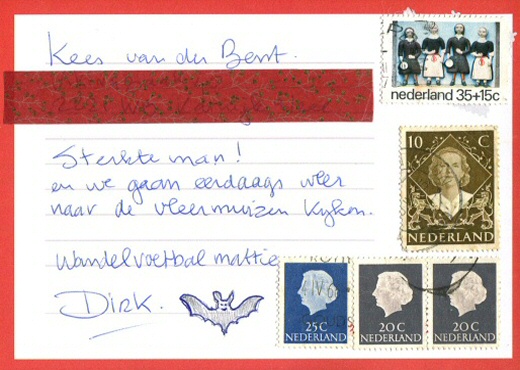 Kees van der Bent.
Sterkte man!
en we gaan eerdaags weer
naar de vleermuizen kijken.
Wandelvoetbal mattie
Dirk.
nederland 35+15c
10 C
NEDERLAND
25 C
NEDERLAND
20 C
NEDERLAND
20 C
NEDERLAND